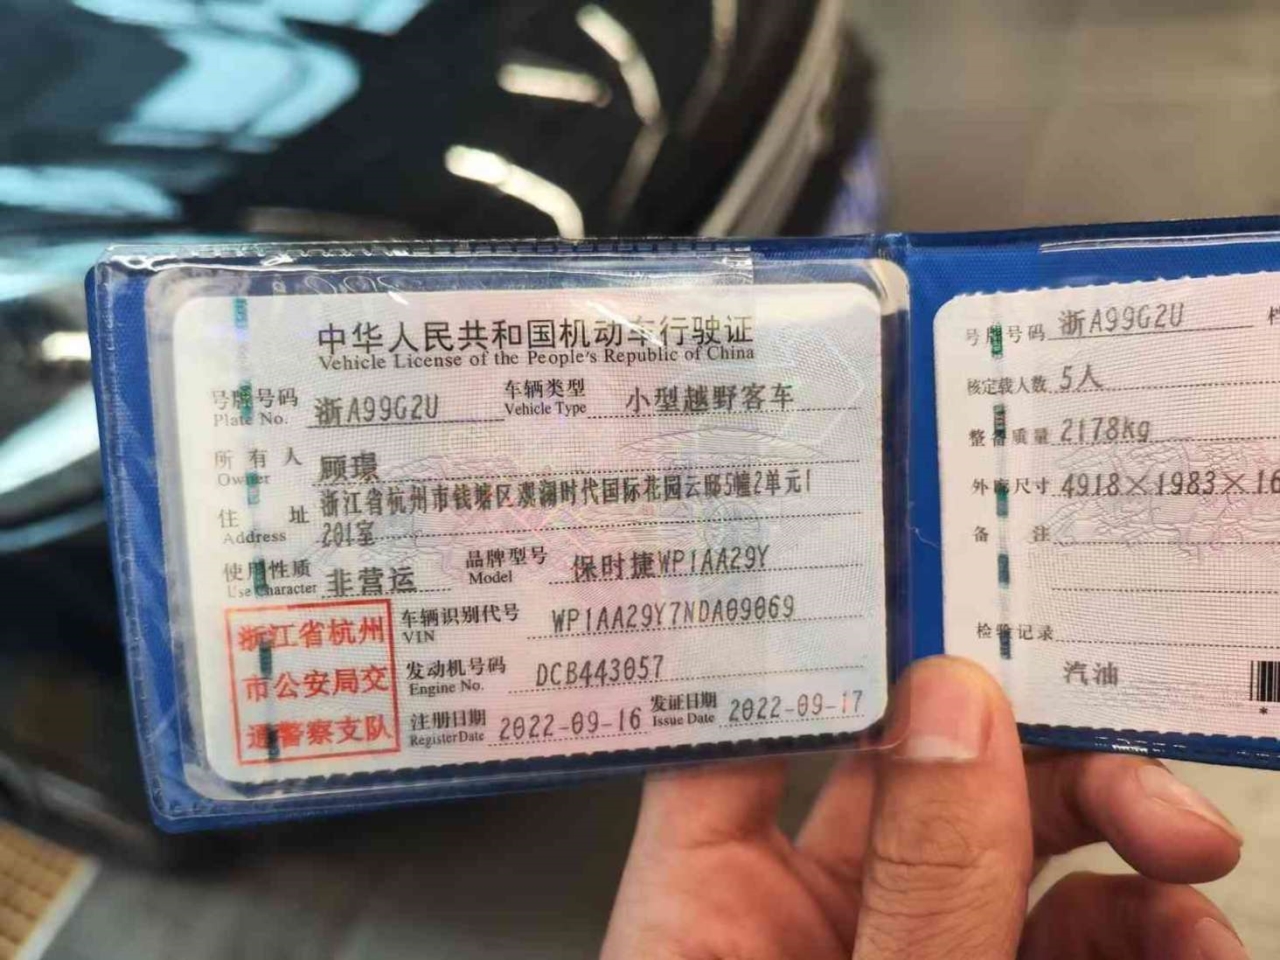 中华人民共和国机动车行驶证
Vehicle License of the People's Republic of China
号牌号码 浙A99G2U 车辆类型 小型越野客车
Plate No. Vehicle Type
所有人 顾璟
Owner
住址 浙江省杭州市钱塘区澳澜时代国际花园云邸5幢2单元1
Address 201室
使用性质 非营运 品牌型号 保时捷WP1AA29Y
Use Character Model
浙江省杭州
市公安局交
通警察支队
车辆识别代号 WP1AA29Y7NDA09069
VIN
发动机号码 DCB443057
Engine No.
注册日期 2022-09-16 发证日期 2022-09-17
Register Date Issue Date
号牌号码 浙A99G2U
核定载人数 5人
整备质量 2178kg
外廓尺寸 4918×1983×16
备注
检验记录
汽油
*